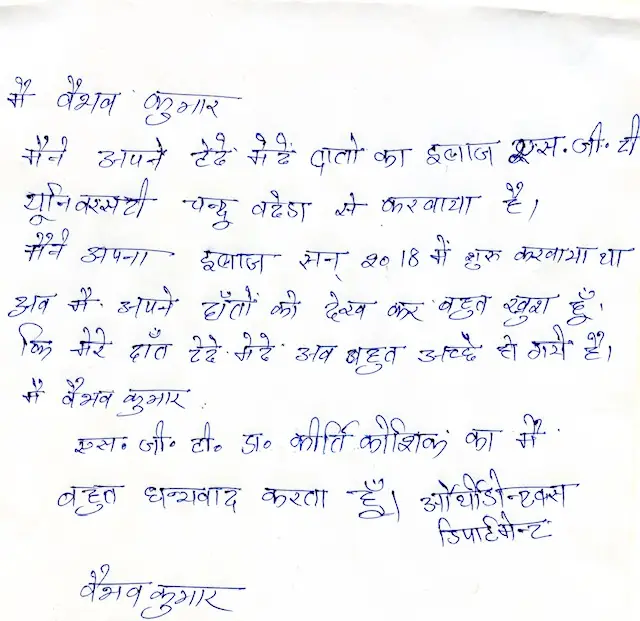 मै वैभव कुमार
मैंने अपने टेढें मेढें दातो का इलाज एस.जी.टी
यूनिवरसटी चन्दू बढेडा से करवाया है।
मैंने अपना इलाज सन् 2018 में शुरु करवाया था
अब मै अपने दाँतों को देख कर बहुत खुश हूँ।
कि मेरे दाँत टेढे मेढे अब बहुत अच्छे हो गये है।
मै वैभव कुमार
एस. जी. टी. डा. कीर्ति कौशिक का मैं
बहुत धन्यवाद करता हूँ। ऑर्थोडोन्टिक्स
डिपार्टमेन्ट
वैभव कुमार